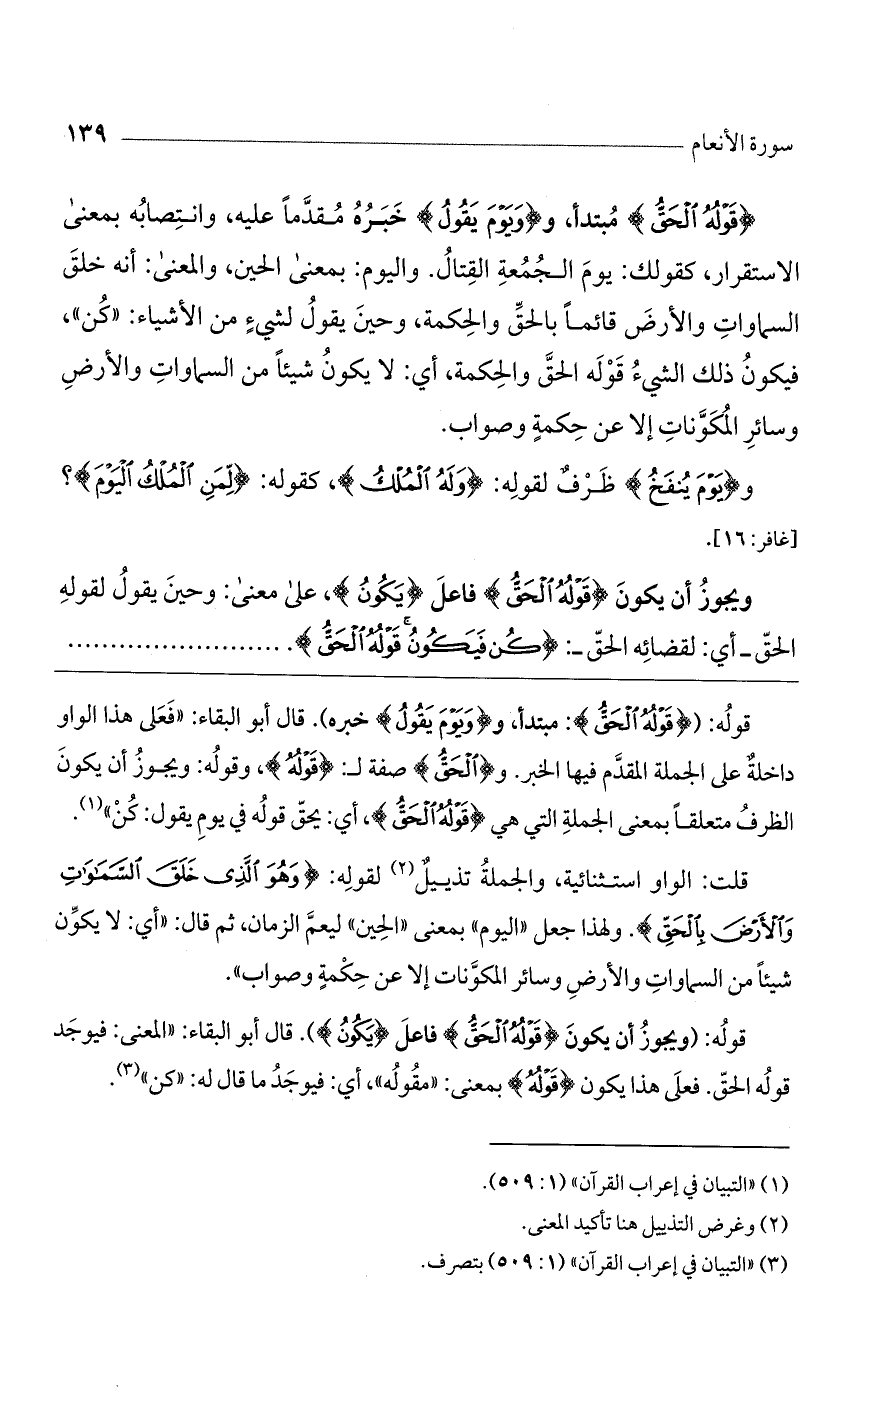 سورة الأنعام ١٣٩
﴿قَوْلُهُ ٱلْحَقُّ﴾ مُبتدأ، و﴿وَيَوْمَ يَقُولُ﴾ خَبَرُهُ مُقدَّماً عليه، وانتِصابُه بمعنىٰ
الاستقرار، كقولك: يومَ الجُمُعةِ القِتالُ. واليوم: بمعنىٰ الحين، والمعنىٰ: أنه خلقَ
السماواتِ والأرضَ قائماً بالحقِّ والحِكمة، وحينَ يقولُ لشيءٍ من الأشياء: «كُن»،
فيكونُ ذلك الشيءُ قَوْلَه الحقَّ والحِكمة، أي: لا يكونُ شيئاً من السماواتِ والأرضِ
وسائرِ المُكَوَّناتِ إلا عن حِكمةٍ وصواب.
و﴿يَوْمَ يُنفَخُ﴾ ظَرْفٌ لقولِه: ﴿وَلَهُ ٱلْمُلْكُ﴾، كقوله: ﴿لِّمَنِ ٱلْمُلْكُ ٱلْيَوْمَ﴾؟
[غافر: ١٦].
ويجوزُ أن يكونَ ﴿قَوْلُهُ ٱلْحَقُّ﴾ فاعلَ ﴿يَكُونُ﴾، علىٰ معنىٰ: وحينَ يقولُ لقولهِ
الحقّ ـ أي: لقضائِه الحقّ ـ: ﴿كُن فَيَكُونُ ۚ قَوْلُهُ ٱلْحَقُّ﴾. .........................
قولُه: (﴿قَوْلُهُ ٱلْحَقُّ﴾: مبتدأ، و﴿وَيَوْمَ يَقُولُ﴾ خبره). قال أبو البقاء: «فَعَلى هذا الواو
داخلةٌ على الجملة المقدَّم فيها الخبر. و﴿ٱلْحَقُّ﴾ صفة لـ: ﴿قَوْلُهُ﴾، وقولُه: ويجوزُ أن يكونَ
الظرفُ متعلقاً بمعنى الجملةِ التي هي ﴿قَوْلُهُ ٱلْحَقُّ﴾، أي: يحقّ قولُه في يومِ يقول: كُنْ»(١).
قلت: الواو استئنائية، والجملةُ تذييلٌ(٢) لقوله: ﴿وَهُوَ ٱلَّذِى خَلَقَ ٱلسَّمَٰوَٰتِ
وَٱلْأَرْضَ بِٱلْحَقِّ﴾. ولهذا جعل «اليوم» بمعنى «الحِين» ليعمَّ الزمان، ثم قال: «أي: لا يكوِّن
شيئاً من السماواتِ والأرضِ وسائر المكوَّنات إلا عن حِكْمةٍ وصواب».
قولُه: (ويجوزُ أن يكونَ ﴿قَوْلُهُ ٱلْحَقُّ﴾ فاعلَ ﴿يَكُونُ﴾). قال أبو البقاء: «المعنى: فيوجَد
قولُه الحقّ. فعلَى هذا يكون ﴿قَوْلُهُ﴾ بمعنى: «مقُولُه»، أي: فيوجَدُ ما قال له: «كن»(٣).
(١) «التبيان في إعراب القرآن» (١: ٥٠٩).
(٢) وغرض التذييل هنا تأكيد المعنى.
(٣) «التبيان في إعراب القرآن» (١: ٥٠٩) بتصرف.